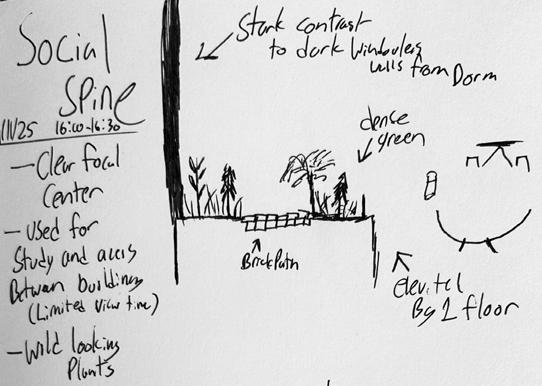 Social
Spine
11/1/25 16:00-16:30
- Clear focal
Center
- Used for
Study and access
Between buildings
(Limited view time)
- Wild looking
Plants
Stark contrast
to dark
walls from Dorm
dense
green
Brick Path
elevated
By 1 floor